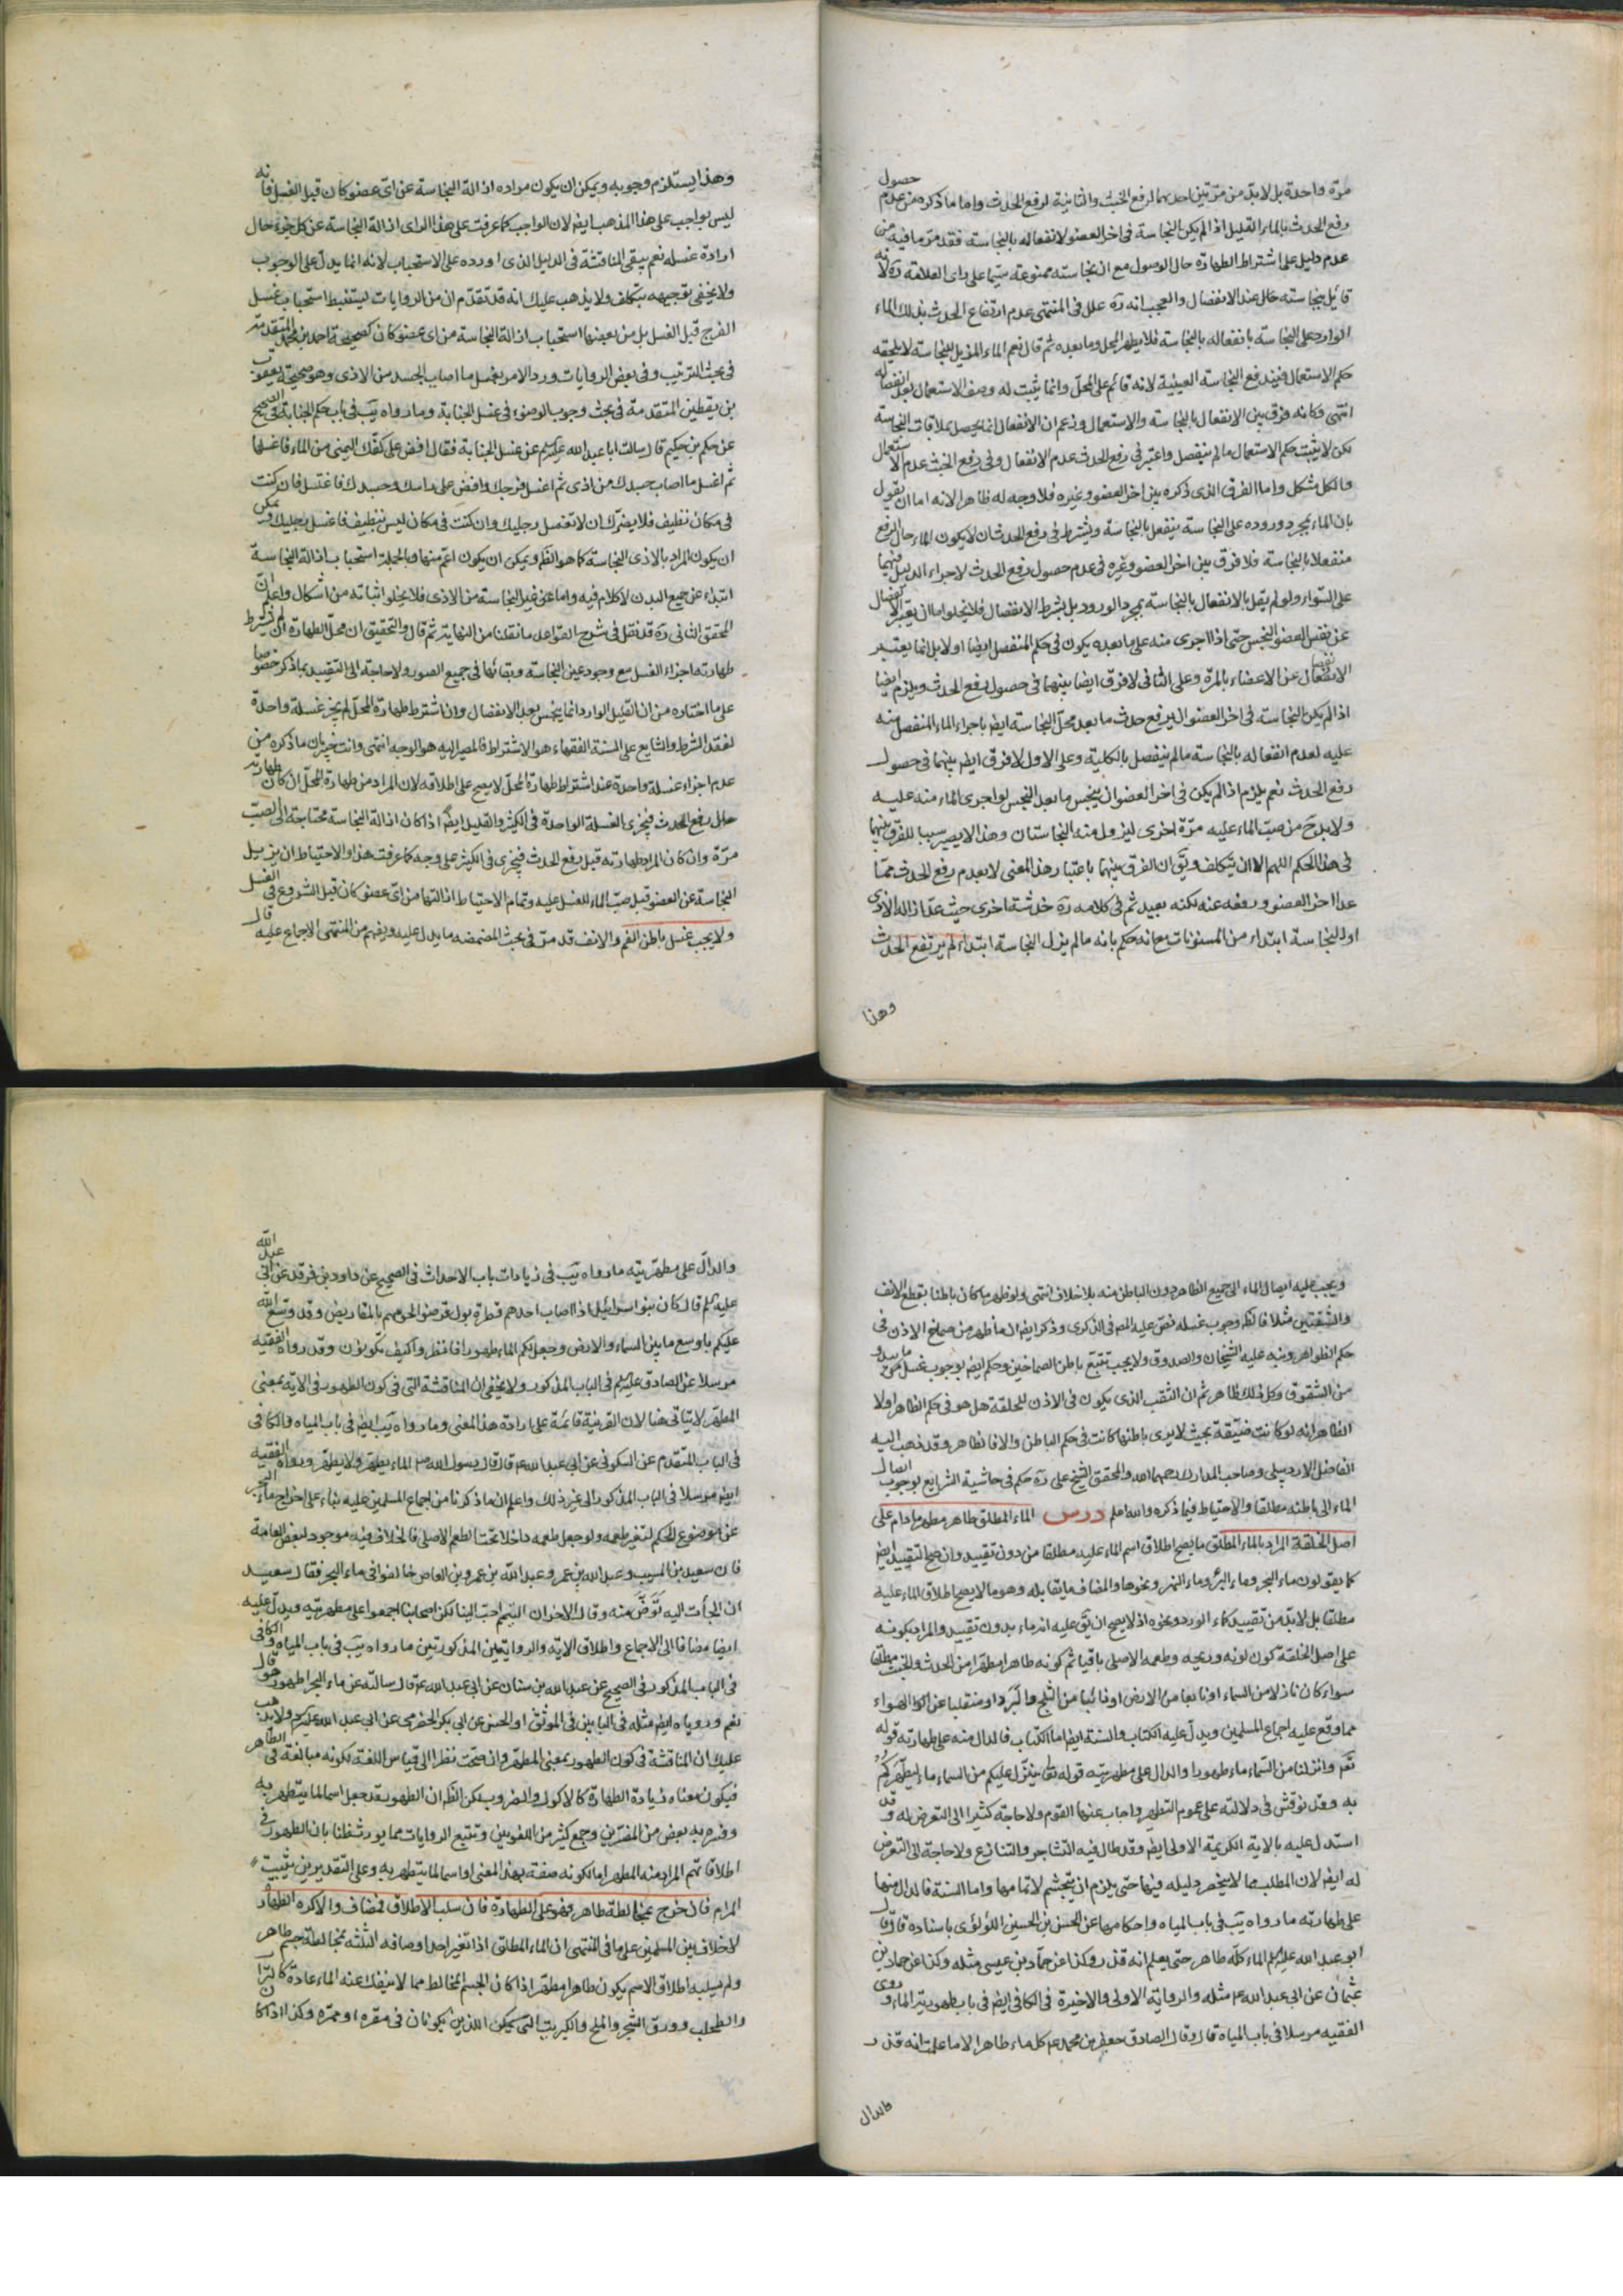 مرّة واحدة بل لابدّ من مرّتين احدىهما لرفع الخبث والثانية لرفع الحدث واما ما ذكره من عدم حصول
رفع الحدث بالماء القليل اذا لم يكن النجاسة فى اخر العضو لانفعاله بالنجاسة فقد مرّ ما فيه من
عدم دليل على اشتراط الطهارة حال الوصول مع ان نجاسته ممنوعة سيّما على راى العلامة ره لانه
قائل بنجاسته حال عند الانفصال والعجب انه ره علل فى المنتهى عدم ارتفاع الحدث بذلك الماء
الوارد على النجاسة بانفعاله بالنجاسة فلا يطهر المحل وما بعده ثم قال نعم الماء المزيل للنجاسة لا يلحقه
حكم الاستعمال فيندفع النجاسة العينية لانه قائم على المحلّ وانما يثبت له وصف الاستعمال بعد انفصاله
انتهى فكانه فرق بين الانفعال بالنجاسة والاستعمال وزعم ان الانفعال انما يحصل بملاقات النجاسة
لكن لا يثبت حكم الاستعمال ما لم ينفصل واعتبر فى رفع الحدث عدم الانفعال وفى رفع الخبث عدم الاستعمال
والكل مشكل واما الفرق الذى ذكره بين اخر العضو وغيره فلا وجه له ظاهرا لانه اما ان يقول
بان الماء بمجرد وروده على النجاسة ينفعل بالنجاسة ويشترط فى رفع الحدث ان لا يكون الماء حال الرفع
منفعلا بالنجاسة فلا فرق بين اخر العضو وغيره فى عدم حصول رفع الحدث لاجراء الدليل فيهما
على السّواء ولو لم يقل بالانفعال بالنجاسة بمجرد الورود بل بشرط الانفصال فلا يخلو اما ان يعتبر الانفصال
عن نفس العضو النجس حتى اذا اجرى منه على ما بعده يكون فى حكم المنفصل ايضا او لا بل انما يعتبر
الانفصال عن الاعضاء بالمرّة وعلى الثانى لا فرق ايضا بينهما فى حصول رفع الحدث ويلزم ايضا
اذا لم يكن النجاسة فى اخر العضو ان يرفع حدث ما بعد محلّ النجاسة ايض باجراء الماء المنفصل منه
عليه لعدم انفعاله بالنجاسة ما لم ينفصل بالكلية وعلى الاول لا فرق ايض بينهما فى حصول
رفع الحدث نعم يلزم اذا لم يكن فى اخر العضو ان ينجس ما بعد النجس لو اجرى الماء منه عليه
ولابد ح من صبّ الماء عليه مرّة اخرى ليزول منه النجاستان وهذا لا يصير سببا للفرق بينهما
فى هذا الحكم اللهم الا ان يتكلف ويق ان الفرق بينهما باعتبار هذا المعنى لا بعدم رفع الحدث مما
عدا اخر العضو ورفعه عنه لكنه بعيد ثم فى كلامه ره خدشة اخرى حيث عدّ ازالة الاذى
او النجاسة ابتداء من المسنونات مع انه حكم بانه ما لم يزل النجاسة ابتداء لم يرتفع الحدث
وهذا
وهذا يستلزم وجوبه ويمكن ان يكون مراده ازالة النجاسة عن اى عضو كان قبل الغسل فانه
ليس بواجب على هذا المذهب ايض لان الواجب كما عرفت على هذا الراى ازالة النجاسة عن كل جزء حال
ارادة غسله نعم يبقى المناقشة فى الدليل الذى اورده على الاستحباب لانه انما يدلّ على الوجوب
ولا يخفى توجيهه بتكلف ولا يذهب عليك انه قد تقدّم ان من الروايات ليستنبط استحباب غسل
الفرج قبل الغسل بل من بعضها استحباب ازالة النجاسة من اى عضو كان كصحيحة احمد بن محمد المتقدمة
فى بحث الترتيب وفى بعض الروايات ورد الامر بغسل ما اصاب الجسد من الاذى وهو صحيحة يعقوب
بن يقطين المتقدمة فى بحث وجوب الوضوء فى غسل الجنابة وما رواه يب فى باب حكم الجنابة فى الصحيح
عن حكم بن حكيم قال سالت ابا عبد الله عليه السلم عن غسل الجنابة فقال افض على كفّك اليمنى من الماء فاغسلها
ثم اغسل ما اصاب جسدك من اذى ثم اغسل فرجك وافض على راسك وجسدك فاغتسل فان كنت
فى مكان نظيف فلا يضرّك ان لا تغسل رجليك وان كنت فى مكان ليس بنظيف فاغسل رجليك ويمكن
ان يكون المراد بالاذى النجاسة كما هو الظ ويمكن ان يكون اعمّ منها وبالجملة استحباب ازالة النجاسة
ابتداء عن جميع البدن لا كلام فيه واما عن غير النجاسة من الاذى فلا يخلو اثباته من اشكال واعلم ان
المحقق الثانى ره قد نقل فى شرح القواعد ما نقلنا من النهاية ثم قال والتحقيق ان محلّ الطهارة ان لم يشترط
طهارته اجزاء الغسل مع وجود عين النجاسة وبقائها فى جميع الصور ولا حاجة الى التقييد بما ذكر خصوصا
على ما اختاره من ان القليل الوارد انما ينجس بعد الانفصال وان اشترط طهارة المحلّ لم يجز غسلة واحدة
لفقد الشرط والشايع على السنة الفقهاء هو الاشتراط فالمصير اليه هو الوجه انتهى وانت خبير بان ما ذكره من
عدم اجزاء غسلة واحدة عند اشتراط طهارة المحلّ لا يصح على اطلاقه لان المراد من طهارة المحلّ ان كان طهارته
حال رفع الحدث فيجزى الغسلة الواحدة فى الكثير والقليل ايض اذا كان ازالة النجاسة محتاجة الى الصبّ
مرّة وان كان المراد طهارته قبل رفع الحدث فيجزى فى الكثير على وجه كما عرفت هذا والاحتياط ان يزيل
النجاسة عن العضو قبل صبّ الماء للغسل عليه وتمام الاحتياط ازالتها من اىّ عضو كان قبل الشروع فى الغسل
ولا يجب غسل باطن الفم والانف قد مرّ فى بحث المضمضه ما يدل عليه ويفهم من المنتهى الاجماع عليه قال
ويجب عليه ايصال الماء الى جميع الظاهر دون الباطن منه بلا خلاف انتهى ولو ظهر ما كان باطنا بقطع الانف
والشفتين مثلا فالظ وجوب غسله نصّ عليه المص فى الذكرى وذكر ايض ان ما ظهر من صماخ الاذن فى
حكم الظواهر ونبه عليه الشيخان والصدوق ولا يجب تتبّع باطن الصماخين وحكم ايض بوجوب غسل ما يبدو
من الشقوق وكل ذلك ظاهر ثم ان الثقب الذى يكون فى الاذن للحلقة هل هو فى حكم الظاهر او لا
الظاهر انه لو كانت ضيّقة بحيث لا يرى باطنها كانت فى حكم الباطن والا فالظاهر وقد ذهب اليه
الفاضل الاردبيلى وصاحب المدارك رحمهما الله والمحقق الشيخ على ره حكم فى حاشية الشرايع بوجوب ايصال
الماء الى باطنه مطلقا والاحتياط فيما ذكره والله اعلم درس الماء المطلق طاهر مطهر ما دام على
اصل الخلقة المراد بالماء المطلق ما يصح اطلاق اسم الماء عليه مطلقا من دون تقييد وان صح التقييد ايض
كما يقولون ماء البحر وماء البئر وماء النهر ونحوها والمضاف ما يقابله وهو ما لا يصح اطلاق الماء عليه
مطلقا بل لابدّ من تقييد كماء الورد ونحوه اذ لا يصح ان يق عليه انه ماء بدون تقييد والمراد بكونه
على اصل الخلقة كون لونه وريحه وطعمه الاصلى باقيا ثم كونه طاهرا مطهرا من الحدث والخبث مطلقا
سواء كان نازلا من السماء او نابعا من الارض او ذائبا من الثلج والبرد او منقلبا عن الهواء
مما وقع عليه اجماع المسلمين ويدلّ عليه الكتاب والسنة ايض اما الكتاب فالدال منه على طهارته قوله
تع وانزلنا من السماء ماء طهورا والدال على مطهريّته قوله تعا ينزل عليكم من السماء ماء ليطهركم
به وقد نوقش فى دلالته على عموم التطهير واجاب عنها القوم ولا حاجة كثيرا الى التعرض له وقد
استدل عليه بالاية الكريمة الاولى ايض وقد طال فيه التشاجر والتنازع ولا حاجة الى التعرض
له ايض لان المطلب مما لا ينحصر دليله فيها حتى يلزم ان يتجشم لاتمامها واما السنة فالدال منها
على طهارته ما رواه يب فى باب المياه واحكامها عن الحسن بن الحسين اللؤلؤى باسناده قال قال
ابو عبد الله عليه السلم الماء كله طاهر حتى يعلم انه قذر وكذا عن حماد بن عيسى مثله وكذا عن حماد بن
عثمان عن ابى عبد الله ع مثله والرواية الاولى والاخيرة فى الكافى ايض فى باب طهورية الماء وروى
الفقيه مرسلا فى باب المياه قال وقال الصادق جعفر بن محمد ع كل ماء طاهر الا ما علمت انه قذر
والدال
والدالّ على مطهريّته ما رواه يب فى زيادات باب الاحداث فى الصحيح عن داود بن فرقد عن ابى عبد الله
عليه السلم قال كان بنو اسرائيل اذا اصاب احدهم قطرة بول قرضوا لحومهم بالمقاريض وقد وسّع الله
عليكم باوسع ما بين السماء والارض وجعل لكم الماء طهورا فانظروا كيف تكونون وقد رواه الفقيه
مرسلا عن الصادق عليه السلم فى الباب المذكور ولا يخفى ان المناقشة التى فى كون الطهور فى الاية بمعنى
المطهّر لا يتاتى هنا لان القرينة قائمة على ارادة هذا المعنى وما رواه يب ايض فى باب المياه والكافى
فى الباب المتقدم عن السكونى عن ابى عبد الله ع قال قال رسول الله ص الماء يطهّر ولا يطهّر ورواه الفقيه
ايض مرسلا فى الباب المذكور الى غير ذلك واعلم ان ما ذكرنا من اجماع المسلمين عليه بناء على اخراج ماء البحر
عن موضوع الحكم لتغير طعمه ولو جعل طعمه داخلا تحت الطعم الاصلى فالخلاف فيه موجود لبعض العامة
فان سعيد بن المسيب وعبد الله بن عمر وعبد الله بن عمرو بن العاص خالفوا فى ماء البحر فقال سعيد
ان الجأت اليه توضّ منه وقال الاخوان التيمم احبّ الينا لكن اصحابنا اجمعوا على مطهريّته ويدلّ عليه
ايضا مضافا الى الاجماع واطلاق الاية والروايتين المذكورتين ما رواه يب فى باب المياه والكافى
فى الباب المذكور فى الصحيح عن عبد الله بن سنان عن ابى عبد الله ع قال سالته عن ماء البحر اطهور هو قال
نعم ورويا ايض مثله فى البابين فى الموثق او الحسن عن ابى بكر الحضرمى عن ابى عبد الله عليه السلم ولا يذهب
عليك ان المناقشة فى كون الطهور بمعنى المطهّر وان صحّت نظرا الى قياس اللغة لكونه مبالغة فى الطاهر
فيكون معناه زيادة الطهارة كالاكول والضروب لكن الظ ان الطهور قد جعل اسما لما يتطهر به
وفسّره به بعض من المفسّرين وجمع كثير من اللغويين وتتبع الروايات مما يورث ظنا بان الطهور فى
اطلاقاتهم المراد منه المطهر اما لكونه صفة بهذا المعنى او اسما لما يتطهر به وعلى التقديرين يثبت
المرام فان خرج عنها بخلطة طاهر فهو على الطهارة فان سلب الاطلاق فمضاف والا كره الطهارة
لا خلاف بين المسلمين على ما فى المنتهى ان الماء المطلق اذا تغير احد اوصافه الثلثه بمخالطة جسم طاهر
ولم يسلبه اطلاق الاسم يكون طاهرا مطهّرا اذا كان الجسم المخالط مما لا ينفك عنه الماء عادة كالتراب
والطحلب وورق الشجر والملح والكبريت الذين يكونان فى مقره او ممرّه وكذا اذا كان